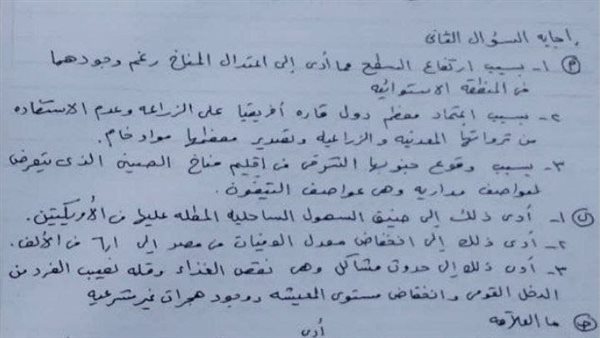 إجابه السؤال الثانى
(أ) ١- بسبب ارتفاع السطح مما أدى إلى اعتدال المناخ رغم وجودهما
فى المنطقة الاستوائيه
٢- بسبب اعتماد معظم دول قاره أفريقيا على الزراعه وعدم الاستفاده
من ثرواتها المعدنيه والزراعيه وتصدير معظمها مواد خام.
٣- بسبب وقوع جنوبها الشرقى فى إقليم مناخ الصينى الذى يتعرض
لعواصف مداريه وهى عواصف التيفون.
(ب) ١- أدى ذلك إلى ضيق السهول الساحليه المطله عليها فى الأمريكيتين.
٢- أدى ذلك إلى انخفاض معدل الوفيات فى مصر إلى ٦٫١ فى الألف.
٣- أدى ذلك إلى حدوث مشاكل وهى نقص الغذاء وقله نصيب الفرد من
الدخل القومى وانخفاض مستوى المعيشه ووجود هجرات غير شرعيه
(ج) ما العلاقه
أدى